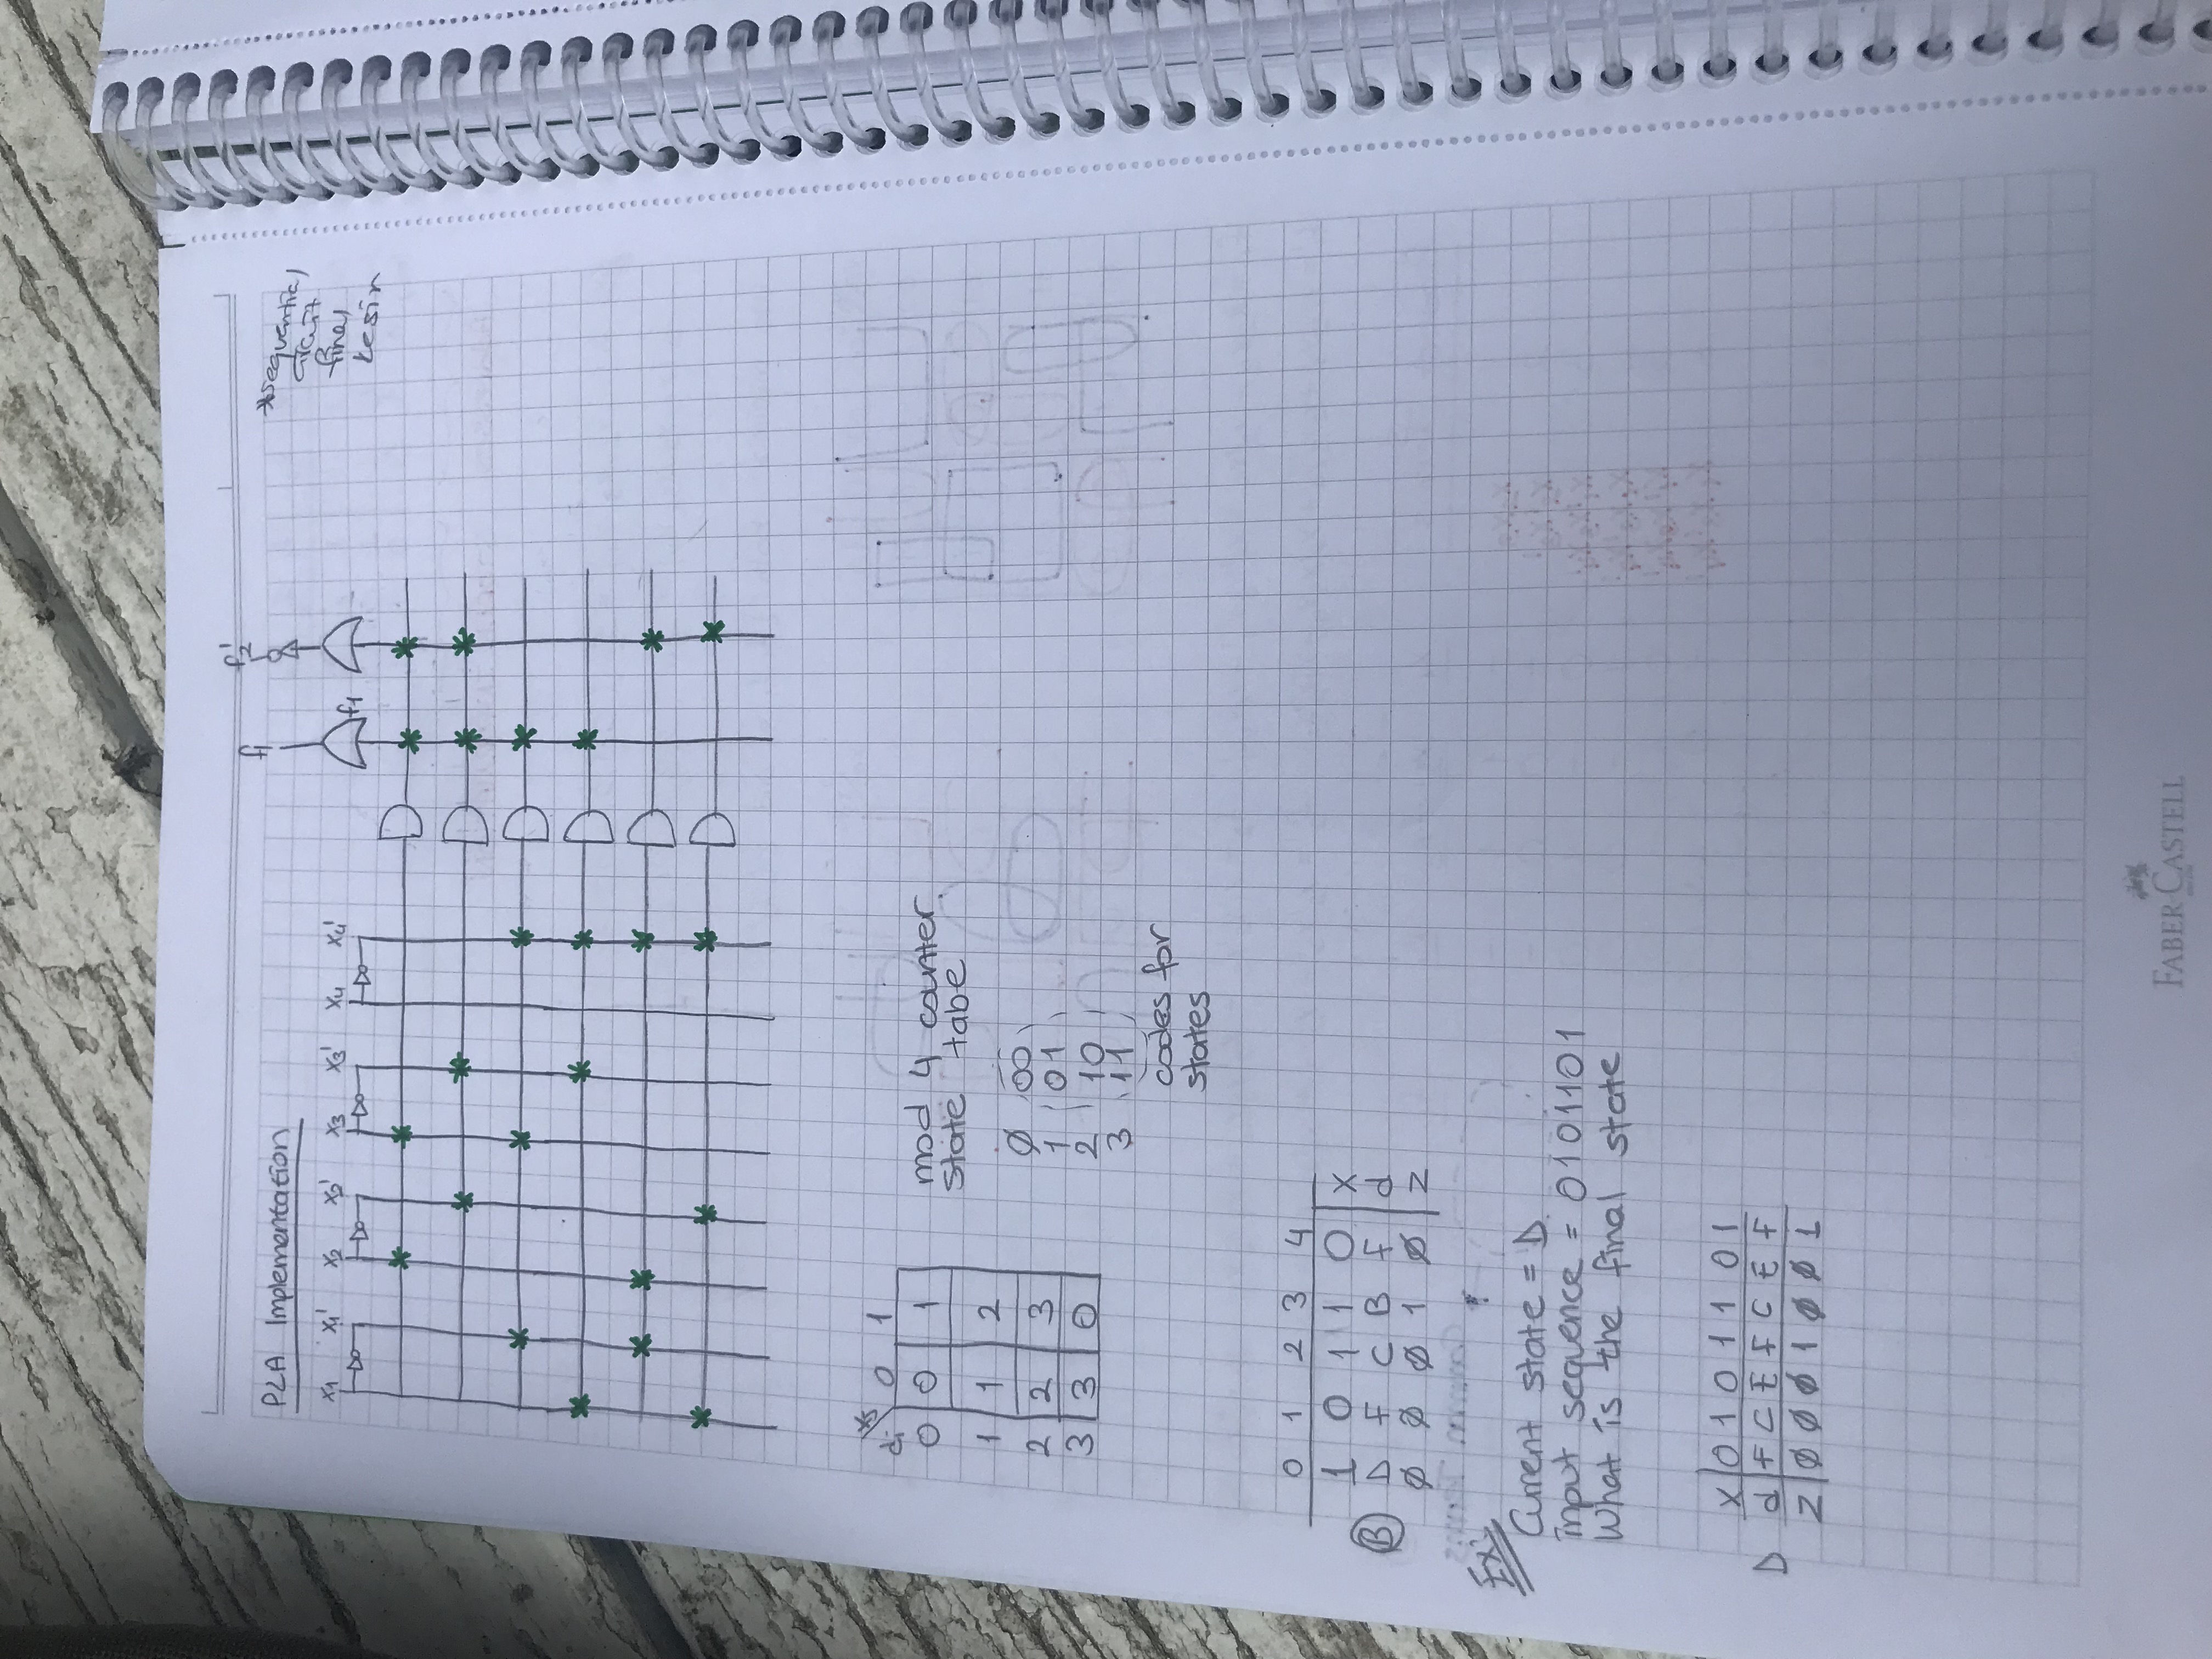 PLA Implementation
f1 f2'
*sequential
circuit
final
kesin
x1 x1' x2 x2' x3 x3' x4 x4'
f1
xs 0 1
di
0 0 1
1 1 2
2 2 3
3 3 0
mod 4 counter
state tabe
Ø 00
1 01
2 10
3 11
codes for
states
0 1 2 3 4
1 0 1 1 0 x
B D F C B F d
Ø Ø Ø 1 Ø z
Ex:
Current state = D
input sequence = 0101101
What is the final state
x 0 1 0 1 1 0 1
D d F C E F C E F
z Ø Ø Ø 1 Ø Ø 1
FABER-CASTELL